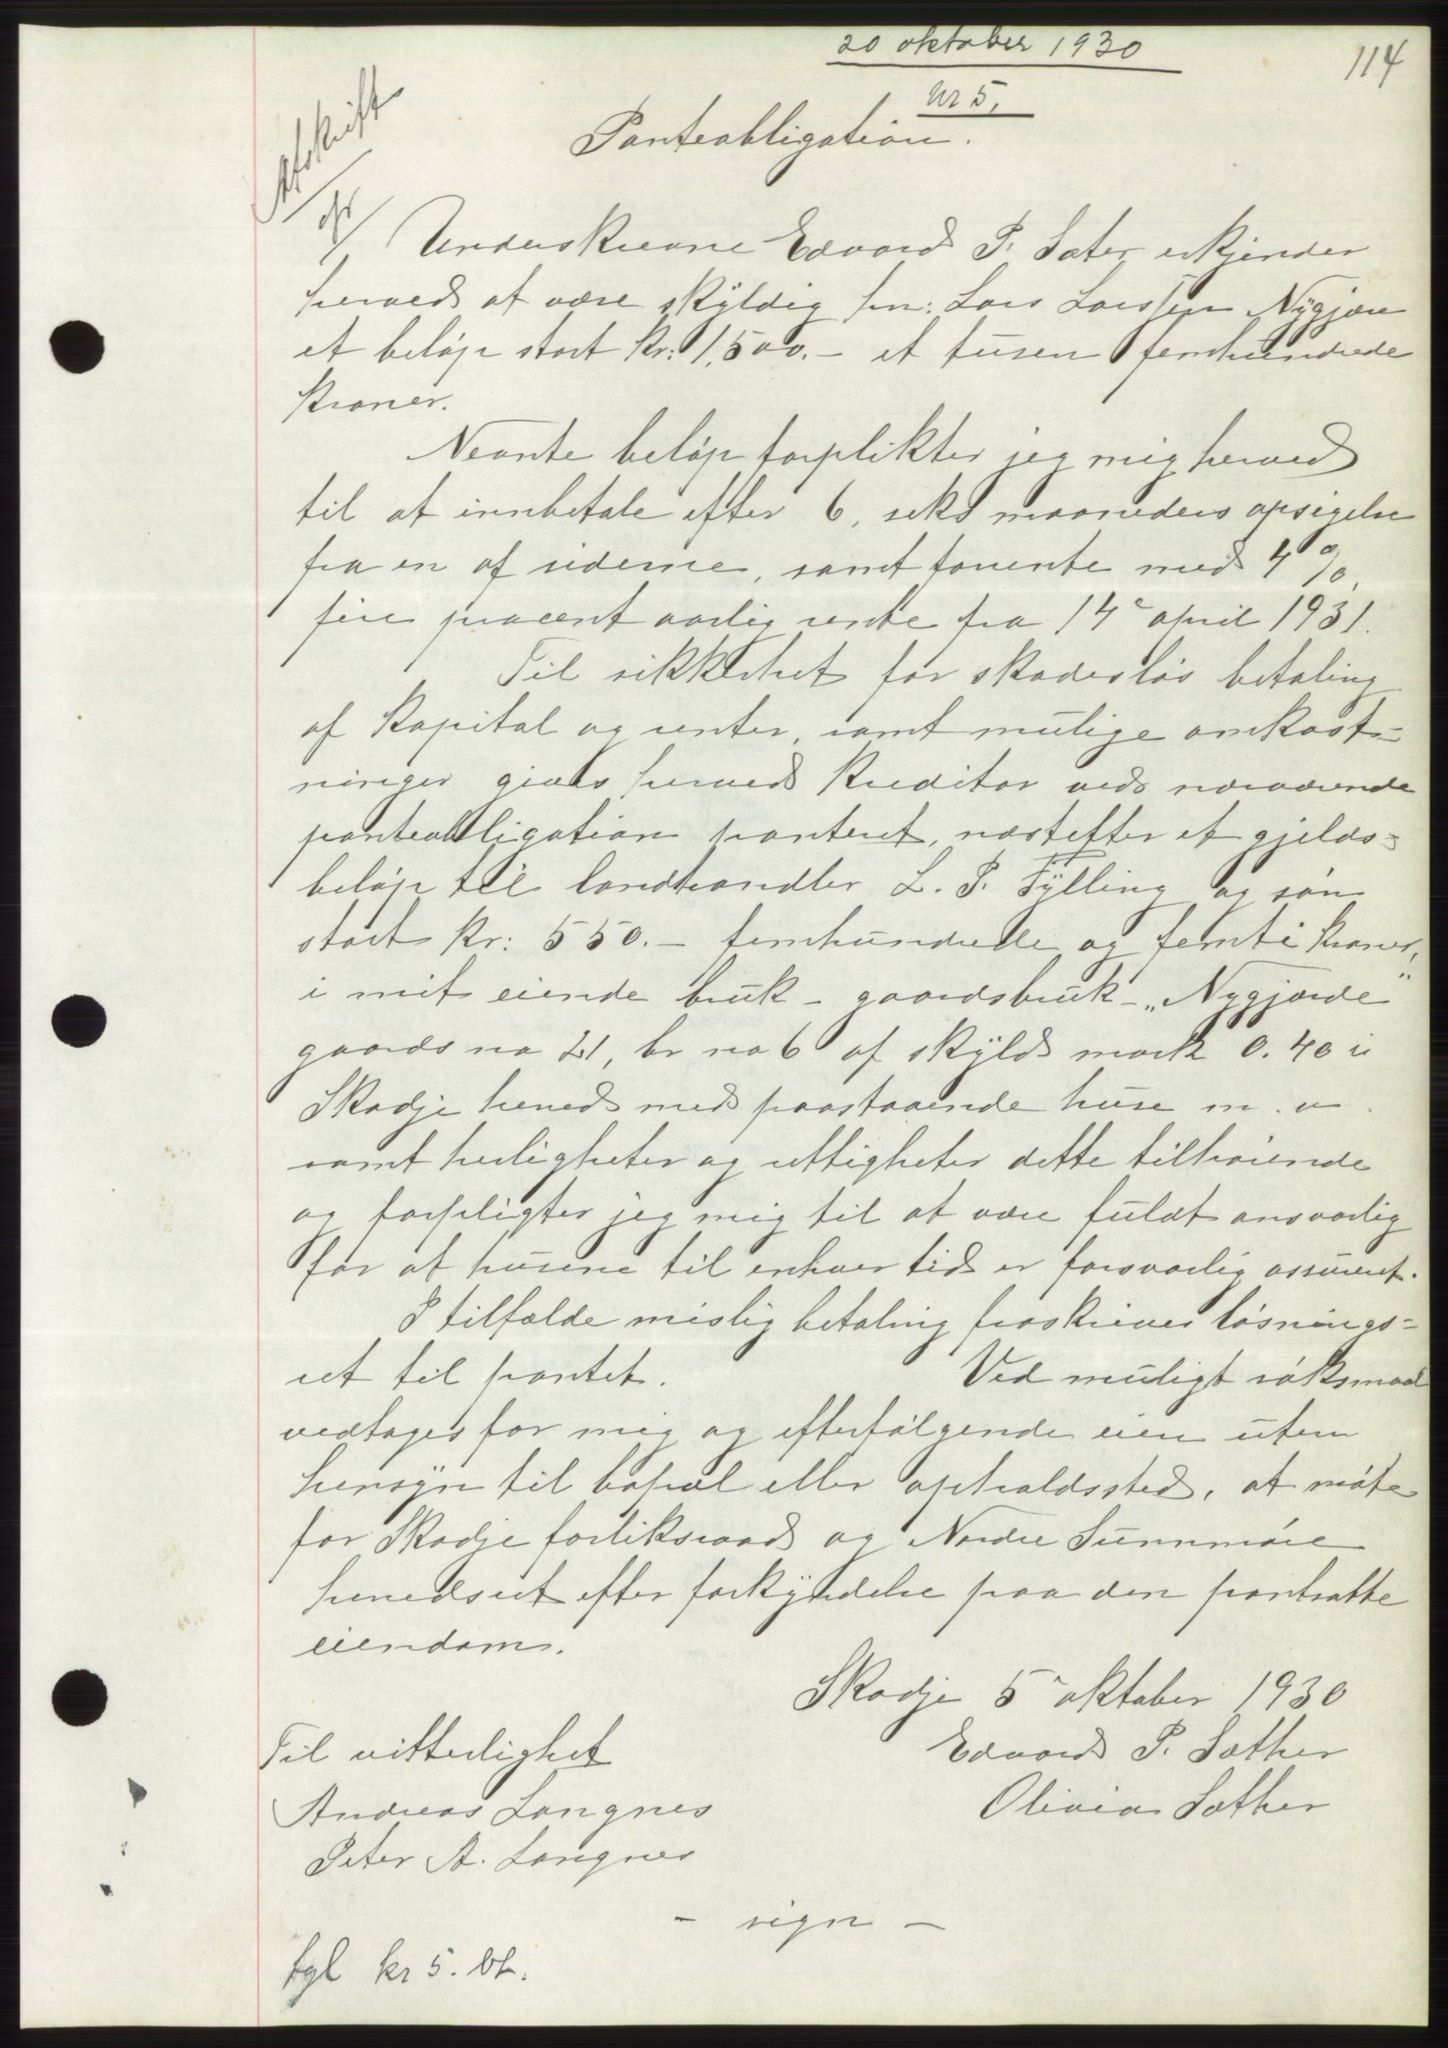 20 oktober 1930
114
Nr 5.
Afskrift
Panteobligation.
Underskrevne Edvard P. Sæter erkjender
herved at være skyldig hr: Lars Larssen Nygjære
et beløp stort kr: 1,500.- et tusen femhundrede
kroner.
Nevnte beløp forplikter jeg mig herved
til at innbetale efter 6, seks maaneders opsigelse
fra en af siderne, samt forrente med 4 %,
fire procent aarlig rente fra 14 april 1931.
Til sikkerhet for skadesløs betaling
af kapital og renter, samt mulige omkost-
ninger gives herved kreditor ved nærværende
panteobligation panteret, næstefter et gjelds-
beløp til landhandler L. P. Fylling og søn
stort kr: 550.- femhundrede og femti kroner,
i mit eiende bruk - gaardsbruk - „Nygjærde"
gaards no 21, br no 6 af skyld mark 0.40 i
Skodje herred med paastaaende huse m. v.
samt herligheter og rettigheter dette tilhørende
og forpligter jeg mig til at være fuldt ansvarlig
for at husene til enhver tid er forsvarlig assureret.
I tilfælde mislig betaling fraskrives løsnings-
ret til pantet. Ved muligt søksmaal
vedtages for mig og efterfølgende eiere uten
hensyn til bopæl eller opholdssted, at møte
for Skodje forliksraad og Nordre Sunnmøre
herredsret efter forkyndelse paa den pantsatte
eiendom.
Skodje 5 oktober 1930
Til vitterlighet
Edvard P. Sæther
Andreas Langnes
Olivia Sæther
Peter A. Langnes
- sign -
tgl kr 5. bt.